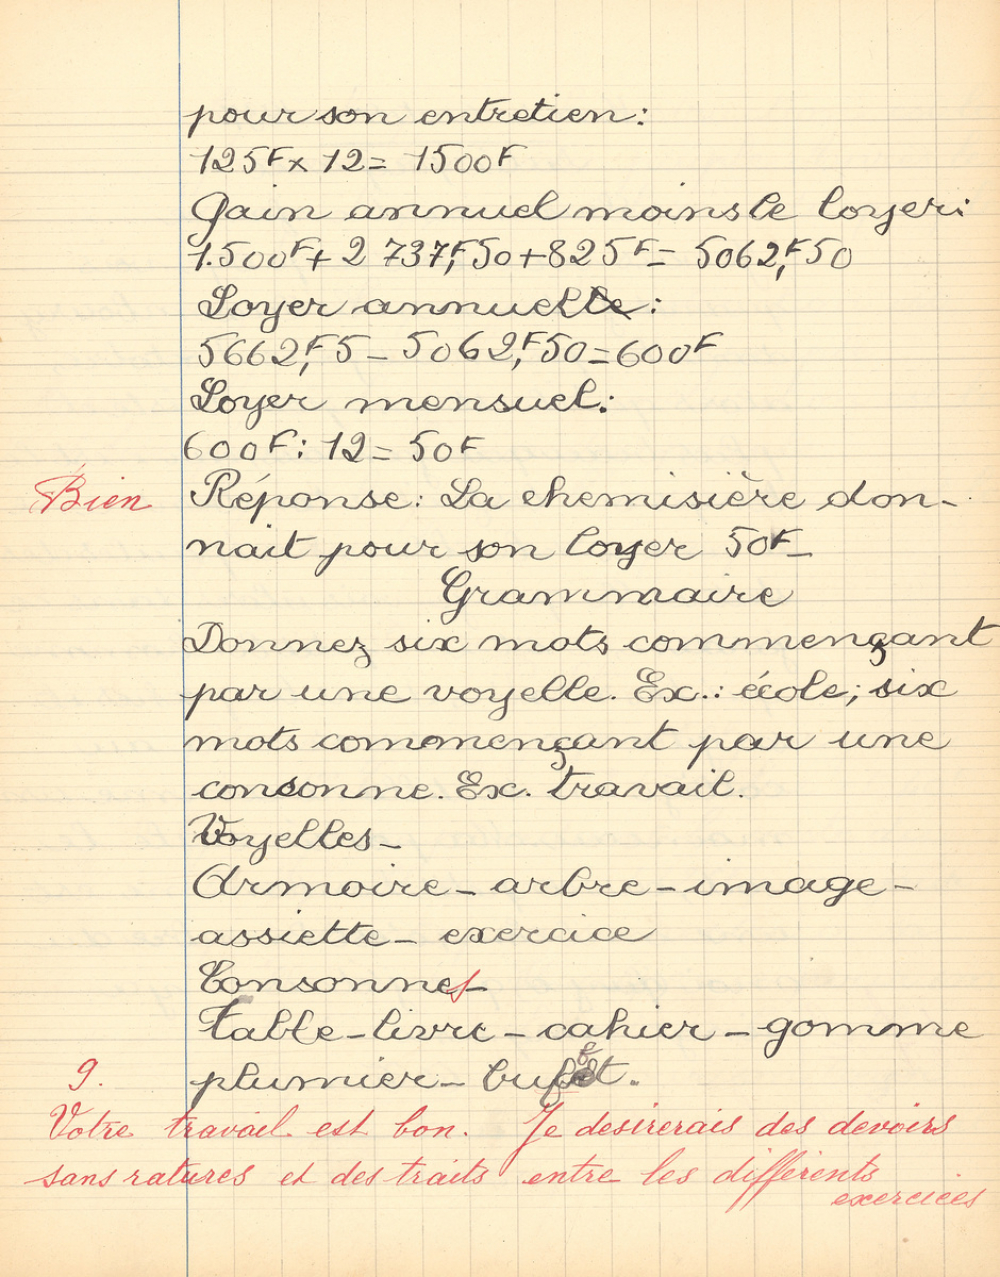 pour son entretien :
125F x 12 = 1500F
Gain annuel moins le loyer :
1.500F + 2 737,F50 + 825F = 5062,F50
Loyer annuelle :
5662,F5 - 5062,F50 = 600F
Loyer mensuel :
600F : 12 = 50F
Bien Réponse : La chemisière don-
nait pour son loyer 50F-
Grammaire
Donnez six mots commençant
par une voyelle. Ex. : école ; six
mots commençant par une
consonne. Ex. travail.
Voyelles -
Armoire - arbre - image -
assiette - exercice
Consonnes -
Table - livre - cahier - gomme
9. plumier - buffet.
Votre travail est bon. Je desirerais des devoirs
sans ratures et des traits entre les différents
exercices